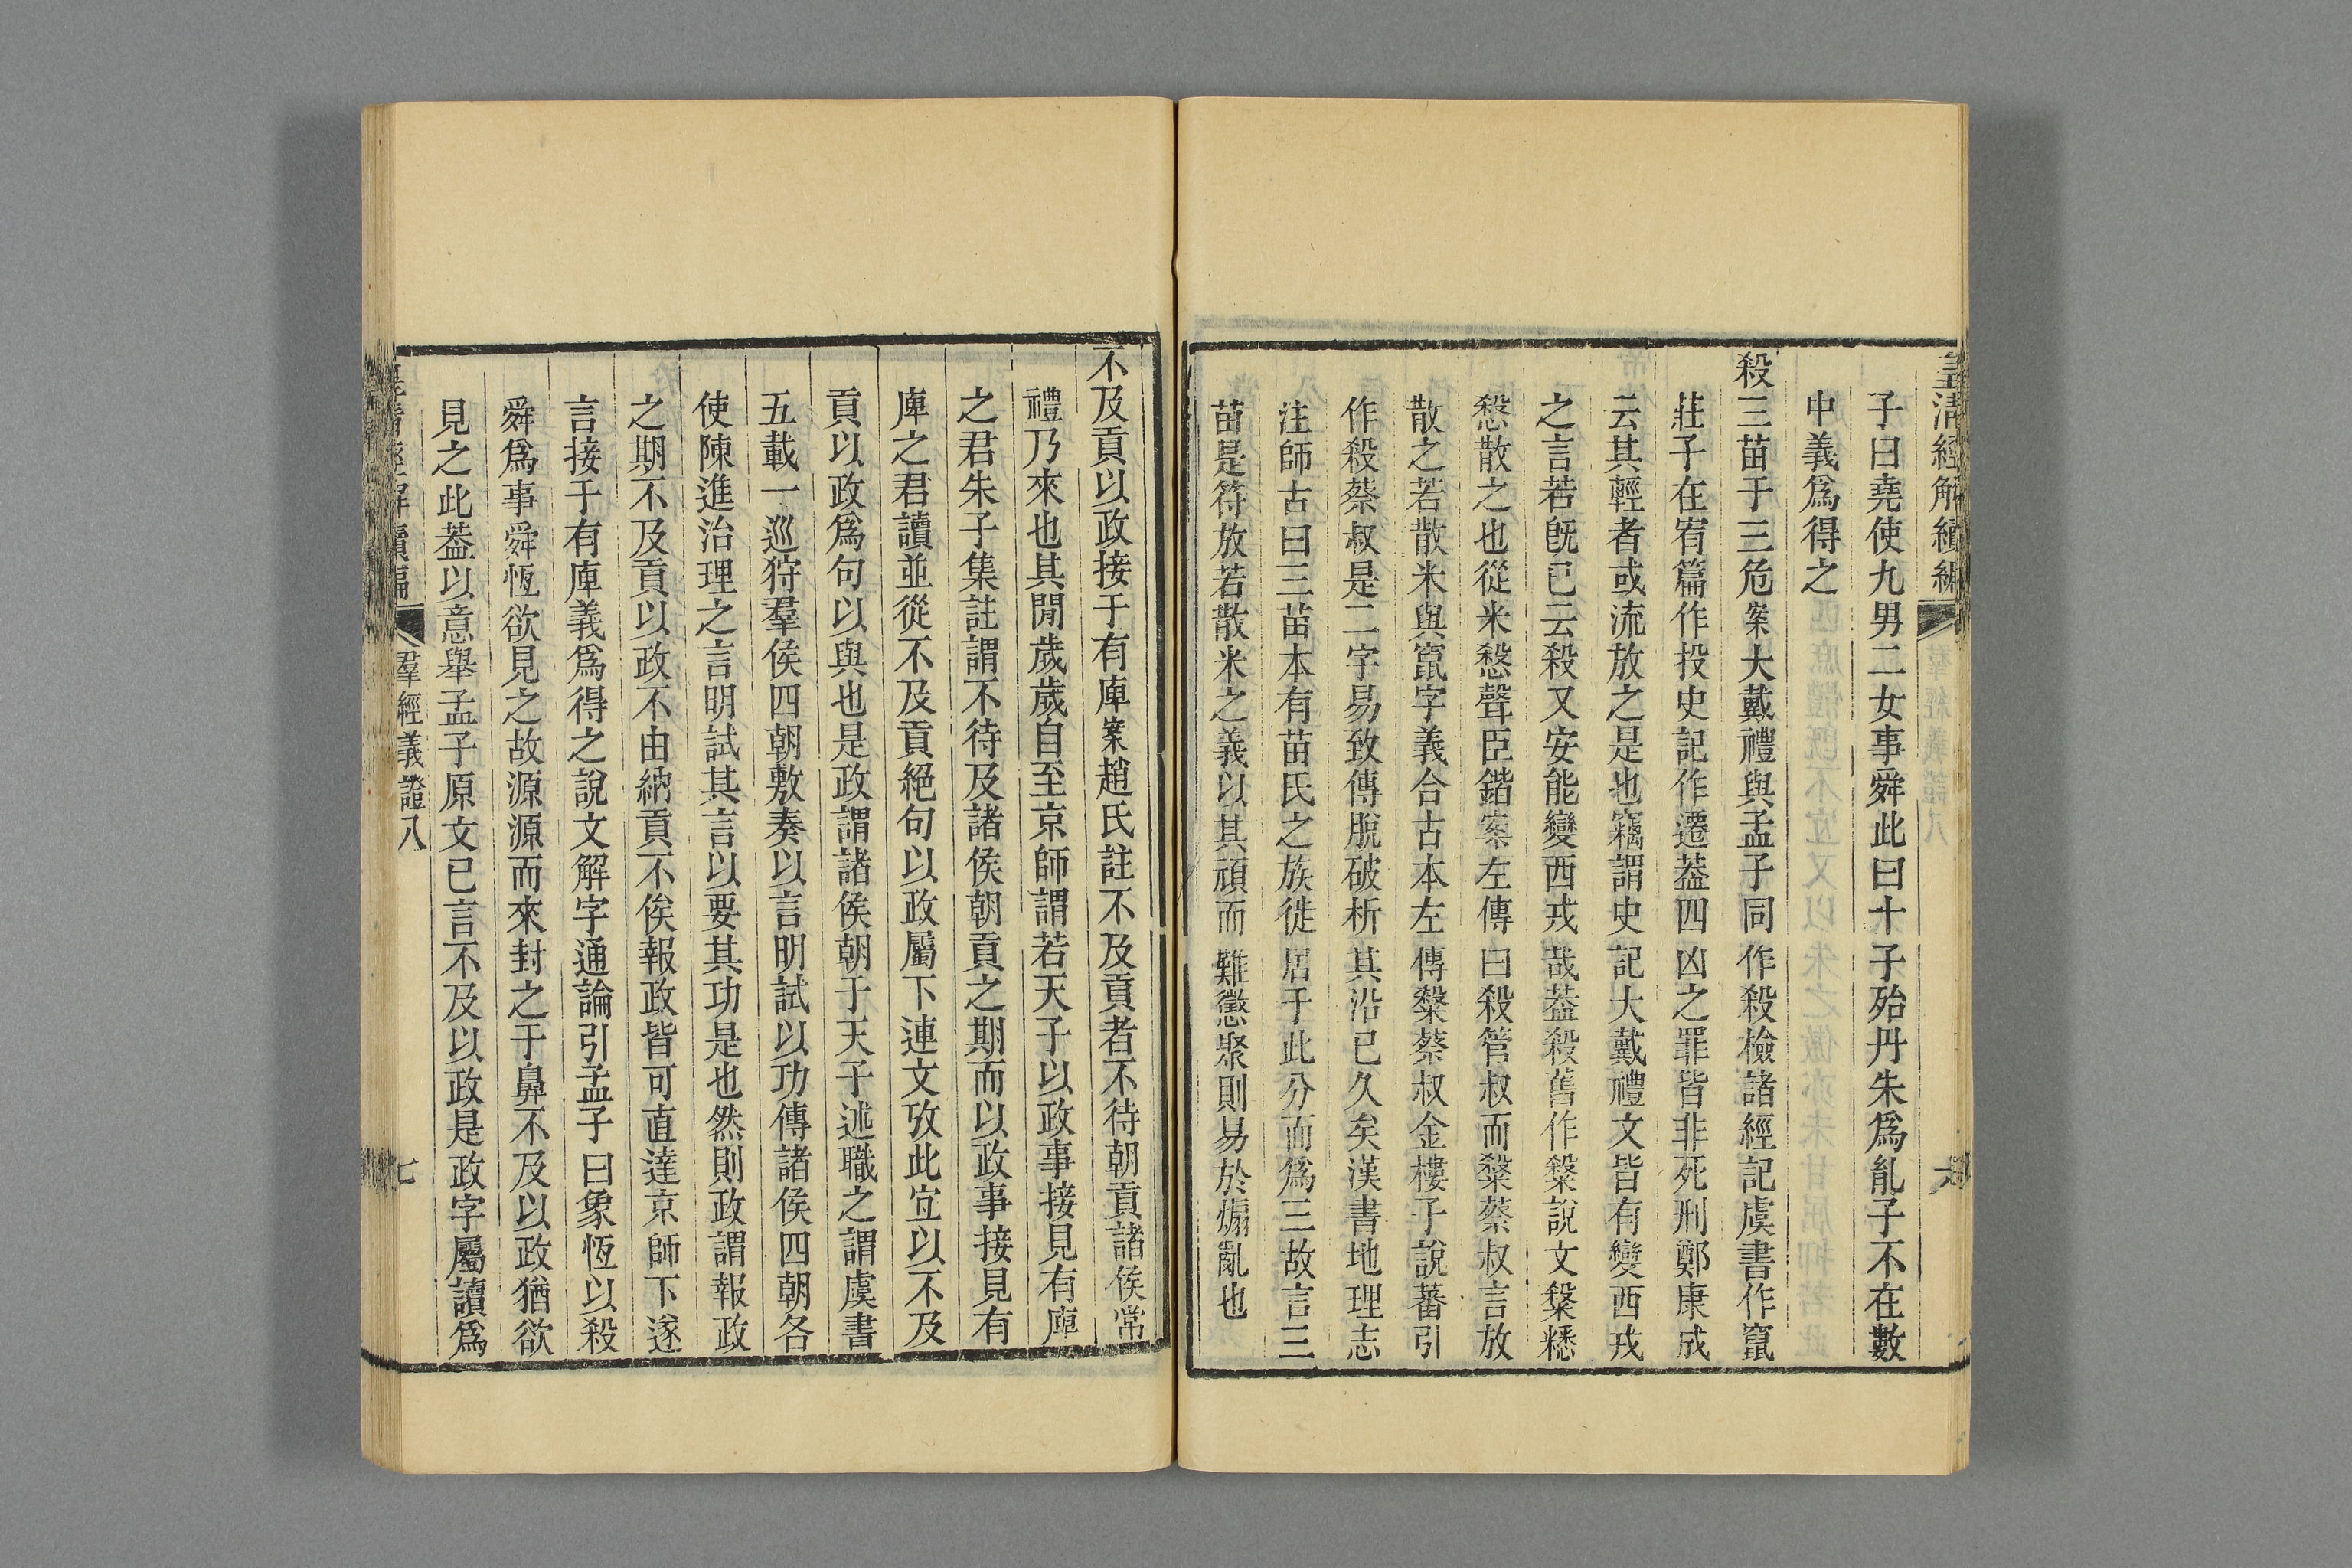 皇清經解續編
羣經義證八
六
子曰堯使九男二女事舜此曰十子殆丹朱爲胤子不在數
中義爲得之
殺三苗于三危案大戴禮與孟子同作殺檢諸經記虞書作竄
莊子在宥篇作投史記作遷葢四凶之罪皆非死刑鄭康成
云其輕者或流放之是也竊謂史記大戴禮文皆有變西戎
之言若旣已云殺又安能變西戎哉葢殺舊作𥻦說文𥻦𥻦
散之也從米殺聲臣鍇案左傳曰殺管叔而𥻦蔡叔言放
散之若散米與竄字義合古本左傳𥻦蔡叔金樓子說蕃引
作殺蔡叔是二字易致傳脫破析其沿已久矣漢書地理志
注師古曰三苗本有苗氏之族徙居于此分而爲三故言三
苗是符放若散米之義以其頑而難懲聚則易於煽亂也
不及貢以政接于有庳案趙氏註不及貢者不待朝貢諸侯常
禮乃來也其閒歲歲自至京師謂若天子以政事接見有庳
之君朱子集註謂不待及諸侯朝貢之期而以政事接見有
庳之君讀並從不及貢絕句以政屬下連文攷此宜以不及
貢以政爲句以與也是政謂諸侯朝于天子述職之謂虞書
五載一巡狩羣侯四朝敷奏以言明試以功傳諸侯四朝各
使陳進治理之言明試其言以要其功是也然則政謂報政
之期不及貢以政不由納貢不俟報政皆可直達京師下遂
言接于有庳義爲得之說文解字通論引孟子曰象恆以殺
舜爲事舜恆欲見之故源源而來封之于鼻不及以政猶欲
見之此葢以意舉孟子原文已言不及以政是政字屬讀爲
皇清經解續編
羣經義證八
七